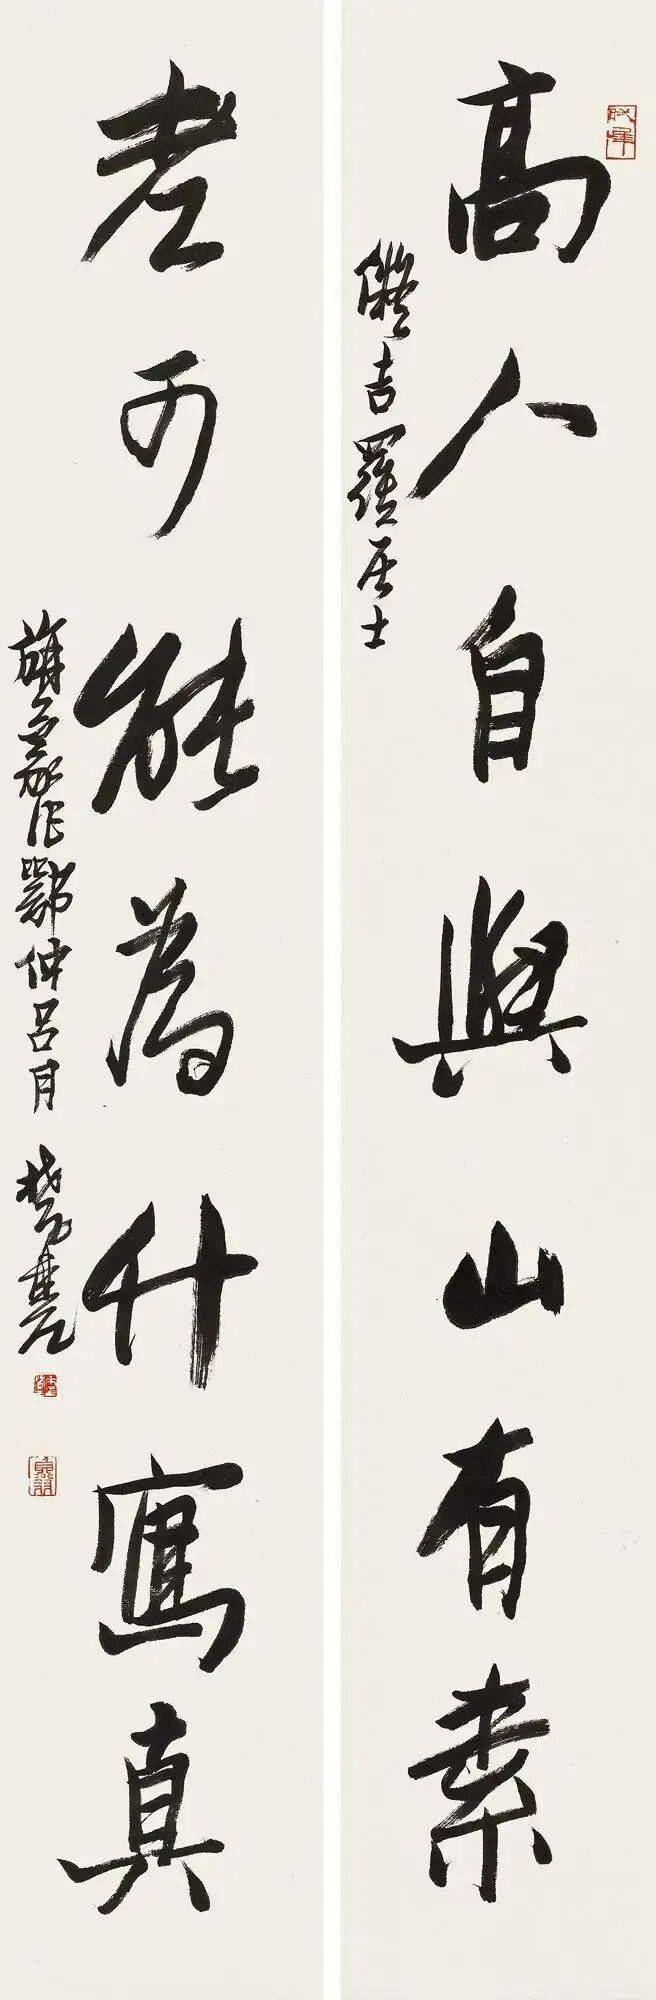 高人自與山有素
儗吉羅居士
老可能為竹寫真
旃蒙作鄂仲呂月